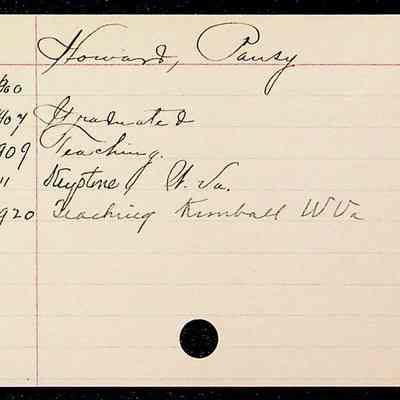 Howard, Pansy
900
907 Graduated
909 Teaching.
11 Keystone, W. Va.
920 Teaching Kimball W Va